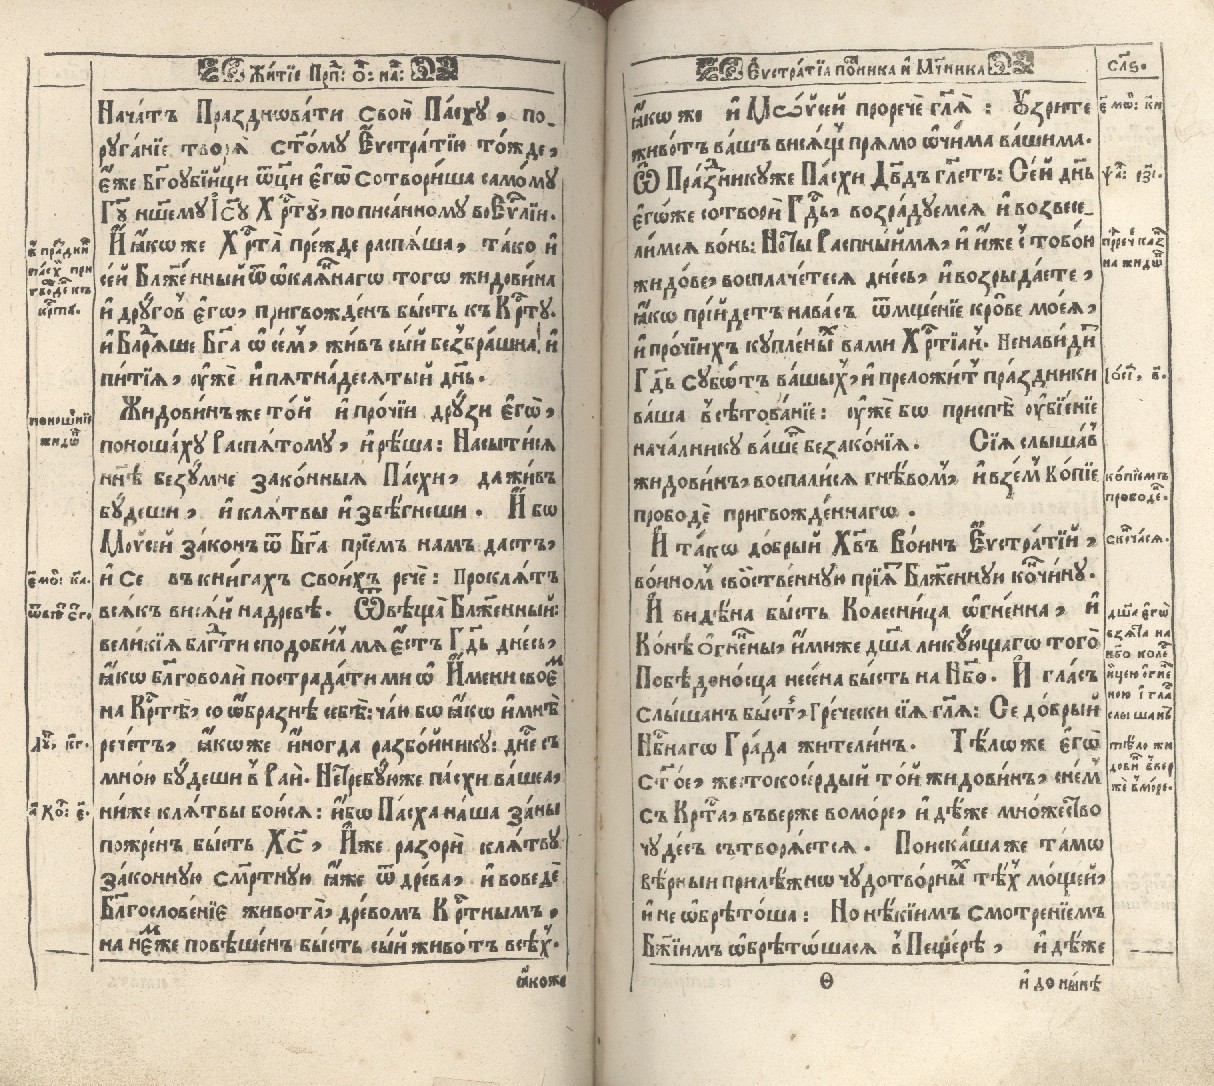 Житїе Прпⷣ: Оц҃а: на:
Нача́тъ Пра́зднѡва́ти свою̀ Па́сху, по-
руга́нїе творѧ̀ ст҃ому Еѵстра́тїю то́жде,
є́же Бг҃оубі́йци ѿци єгѡ̀ сотвори́ша само́му
Гд҃у нш҃ему Іс҃у Хрⷭ҇ту̀, по пи́санному во Еѵⷢ҇лїи.
И҆ ꙗ҆́коже Хрⷭ҇та̀ пре́жде распѧ́ша, та́ко и҆
се́й Блаже́нный ѿ ѡ҆каѧ́ннагѡ тогѡ жидови́на
и҆ дрꙋгѡ́въ єгѡ̀, пригвожде́нъ бы́сть къ Крⷭ҇тꙋ.
и҆ Благодарѧ́ше Бг҃а ѡ҆ се́мъ, жи́въ сы́й без̾ бра́шна, и҆
питїѧ̀, ᲂу҆жѐ и҆ пѧтна́десѧтый дн҃ь.
Жидови́нъ же то́й и҆ про́чїи дрꙋ́зи єгѡ̀,
поноша́хꙋ Распѧ́томꙋ, и҆ рѣ́ша: Насы́тисѧ
нн҃ѣ безꙋ́мне зако́нныѧ Па́схи, да жи́въ
бꙋ́деши, и҆ клѧ́твы и҆збѣ́гнеши. И҆ бо
Мѡѵсе́й зако́нъ ѿ Бг҃а прїе́мъ на́мъ да́стъ,
и҆ се въ кни́гахъ свои́хъ речѐ: Проклѧ́тъ
всѧ́къ висѧ́й на дре́вѣ. Ѿвѣща̀ Блаже́нный:
вели́кїѧ блгⷣти сподо́билъ мѧ є҆́стъ Гдⷭ҇ь дне́сь,
ꙗ҆́кѡ бл҃говолѝ пострада́ти ми ѡ҆ И҆́мени своемъ
на Крⷭ҇тѣ̀, соѡбра́знѣ себѣ̀: ча́ю бо ꙗ҆́кѡ и҆ мнѣ̀
рече́тъ, ꙗ҆́коже и҆ногда разбо́йникꙋ: дне́сь съ
мно́ю бꙋ́деши в̾ Раѝ. Не тре́бꙋю же па́схи ва́шеѧ,
ни́же клѧ́твы бою́сѧ: и҆́бо Па́сха на́ша за ны̀
пожре́нъ бы́сть Хс҃, И҆́же разорѝ клѧ́твꙋ
зако́ннꙋю см҃ртнꙋю ꙗ҆́же ѿ дре́ва, и҆ воведѐ
Благослове́нїе живота̀, дре́вомъ Крⷭ҇тнымъ,
на не́мже повѣ́шенъ бы́сть сы́й живо́тъ всѣ́хъ.
ꙗ҆́коже
в̾ пра́здникъ
па́схи при
гвожде́нъ къ
крⷭ҇тꙋ.
поноше́нїе
жидо́въ
мѡѵ: ка.
ѿвѣтъ єг҃ѡ.
Лꙋ, кг.
а҃ Ко: є.
Еѵстра́тїа по́стника и҆ Мч҃ника
сл҃ѕ.
ꙗ҆́коже и҆ Мѡѵсе́й проречѐ гл҃ѧ: Оу҆́зрите
живо́тъ ва́шъ висѧ́щъ прѧ́мо ѻ҆чи́ма ва́шима.
Ѡ Пра́здникꙋ же Па́схи Дв҃дъ гл҃етъ: Се́й дн҃ь
єгѡ́же сотворѝ Гдⷭ҇ь, возра́дꙋемсѧ и҆ возвесе-
ли́мсѧ во́нь: Но ты̀ Распны́й мѧ, и҆ и҆̀же с̾ тобо́ю
жидо́ве, воспла́четесѧ дне́сь, и҆ возрыда́ете,
ꙗ҆́кѡ прїи́детъ на ва́съ ѿмще́нїе кро́ве моеѧ̀,
и҆ про́чїихъ кꙋ́пленыхъ ва́ми Хрⷭ҇тїа́нъ. Ненави́дитъ
Гдⷭ҇ь сꙋбѡ́тъ ва́шыхъ, и҆ преложи́тъ пра́здники
ва́ша в̾ сѣ́тованїе: ᲂу҆жѐ бо приспѣ̀ ᲂу҆бїе́нїе
нача́лникꙋ ва́шегѡ беззако́нїѧ. Сїѧ̀ слы́шавъ
жидови́нъ, воспали́сѧ гнѣ́вомъ, и҆ взе́мъ ко́пїе
прободѐ пригвожде́ннагѡ.
И҆ та́кѡ до́брый Хв҃ъ Во́инъ Еѵстра́тїй,
во́иномъ сво́йственнꙋю прїѧ́тъ Бл҃же́ннꙋю кончи́нꙋ.
И҆ ви́дѣна бы́сть Колесни́ца ѻ҆́гненна, и҆
Ко́нѣ ѻ҆́гнены, и҆́миже дш҃а ликꙋ́ющагѡ того̀
Побѣдоно́сца несе́на бы́сть на Нб҃о. И҆ гла́съ
слы́шанъ бы́сть, гре́чески сїѧ̀ гл҃ѧ: Се до́брый
Нбⷭ҇нагѡ Гра́да жи́телинъ. Тѣ́ло же єгѡ̀
ст҃ое, жестокосе́рдый то́й жидови́нъ, сне́мъ
съ Крⷭ҇та̀, вве́рже во мо́ре, и҆дѣ́же мно́жество
чꙋде́съ сътворѧ́етсѧ. Поиска́ша же та́мѡ
вѣ́рныи прилѣ́жнѡ чꙋдотво́рныхъ тѣ́хъ моще́й,
и҆ не ѡ҆брѣто́ша: Но нѣ́кїимъ Смотре́нїемъ
Бж҃їимъ ѡ҆брѣто́шасѧ в̾ Пеще́рѣ, и҆дѣ́же
Ѳ
и҆ до ны́нѣ
ѱа: рз҃і.
прⷪ҇речⷭ҇ каз
на жидѡ́въ
ко́пїемъ
прободе́нъ.
сконча́сѧ.
дш҃а єгѡ̀
взѧ́та на
нб҃о коле
сни́цею ѻ҆́гне
ною и҆ гла́съ
слы́шанъ
тѣ́ло жи
дови́нъ вве́р
же в̾ мо́ре.